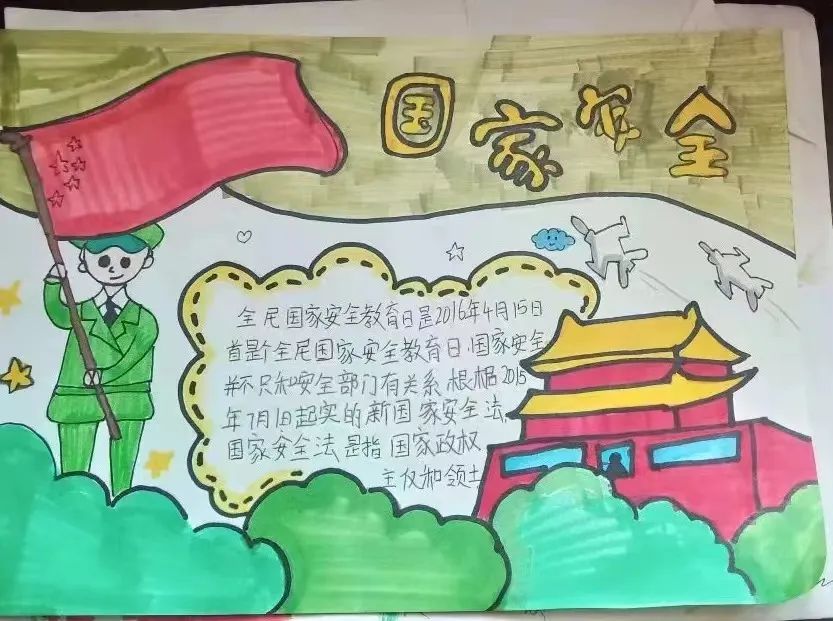 国家安全
全民国家安全教育日是2016年4月15日
首是个全民国家安全教育日.国家安全
并不只和安全部门有关系.根椐2015
年7月1日起实的新国家安全法,
国家安全法,是指国家政权
主仅和领土